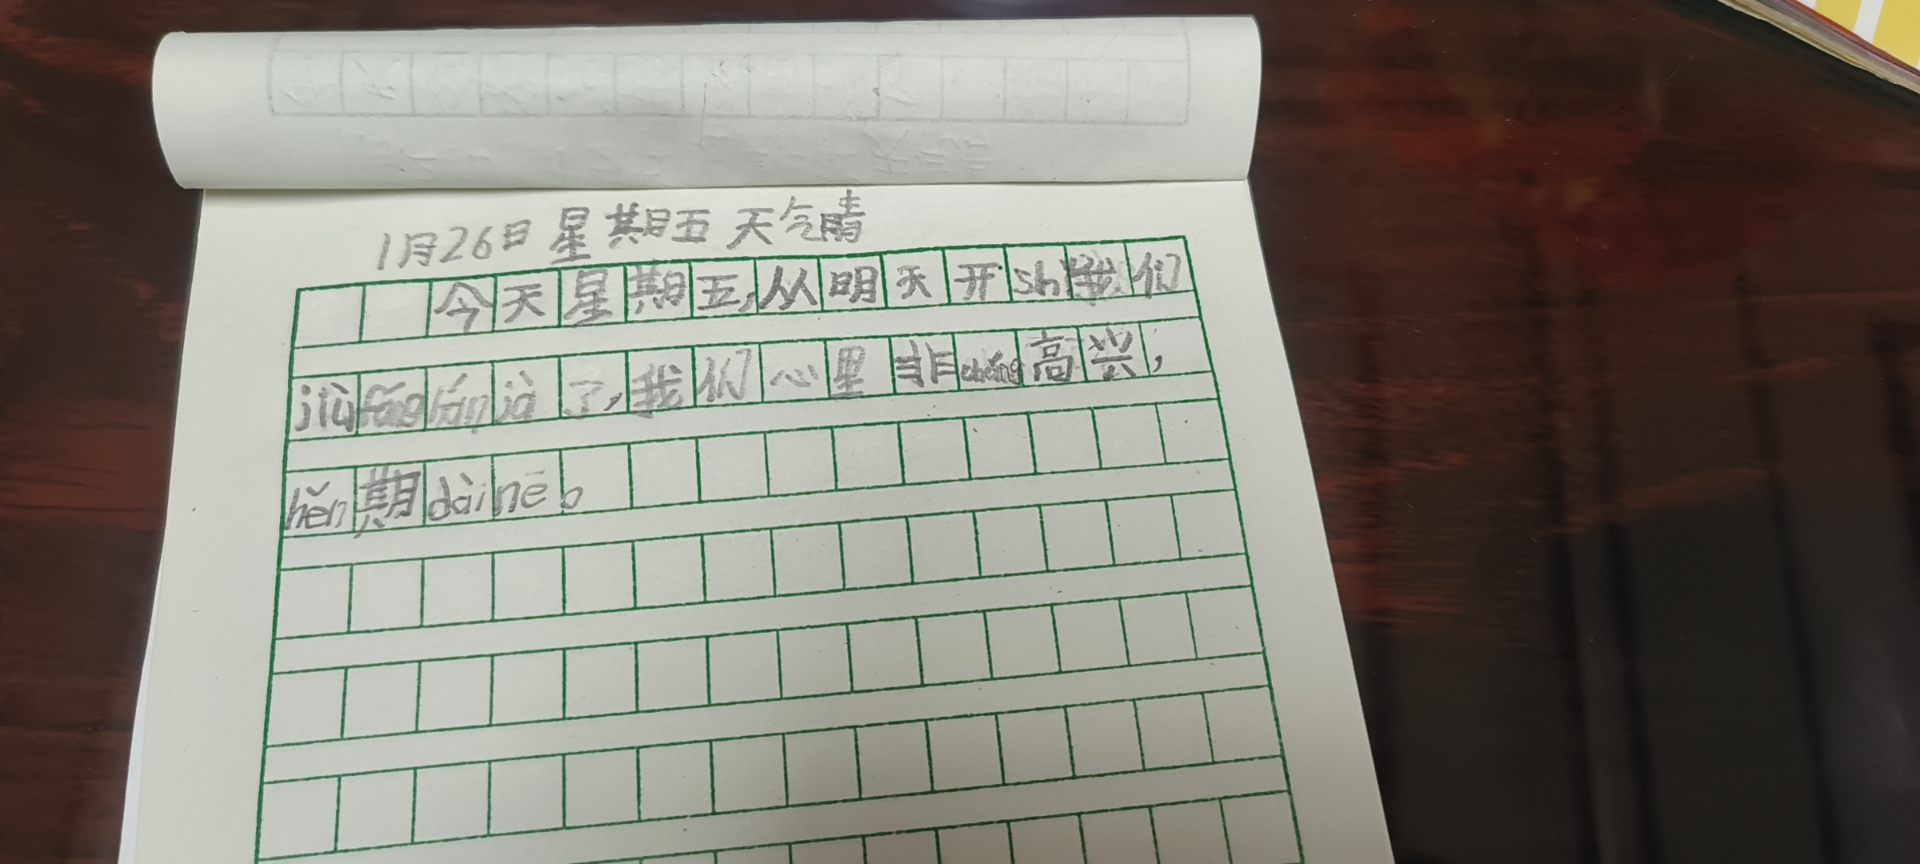 1月26日 星期五 天气晴
今天星期五,从明天开shǐ我们
jiùfànghánjià了,我们心里非cháng高兴,
hěn期dàinē。